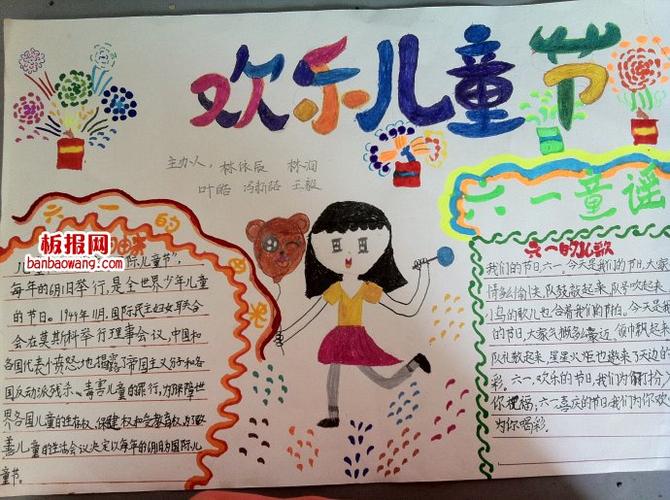 欢乐儿童节
主办人，林依辰 林润
叶皓 冯新路 王毅
六一的
由来
板报网
banbaowang.com
儿童节"，
每年的6月1日举行，是全世界少年儿童
的节日。1949年11月，国际民主妇女联合
会在莫斯科举行理事会议，中国和
各国代表个愤怒力地揭露了帝国主义分子和各
国反动派残杀、毒害儿童的罪行，为了保障世
界各国儿童的生存权、保健权和受教育权，为了改
善儿童的生活会议决定以每年的6月1日为国际儿
童节。
六一童谣
六一的儿歌
我们的节日六一，今天是我们的节日，大家
情多么愉快，队鼓敲起来，队号吹起来
小鸟的歌儿也合着我们的节拍。今天是
的节日，大家气概多么豪迈。领巾飘起来
队礼敬起来，星星火炬也映来了天边的
彩。六一，欢乐的节日，我们为你打扮，
你祝福；六一喜庆的节日，我们为你欢
为你喝彩。